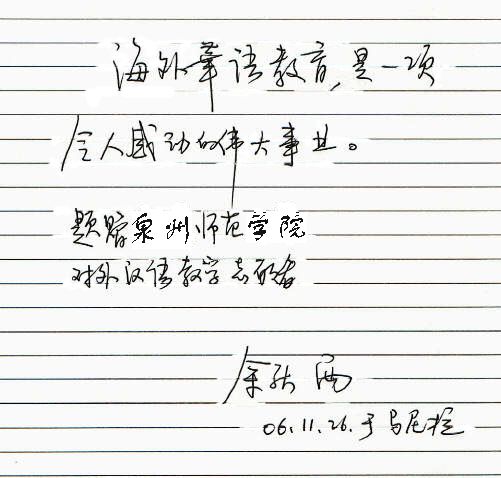 海外華语教育,是一项
令人感动的伟大事业。
题赠泉州师范学院
对外汉语教学志愿者
余秋雨
06.11.26.于马尼拉